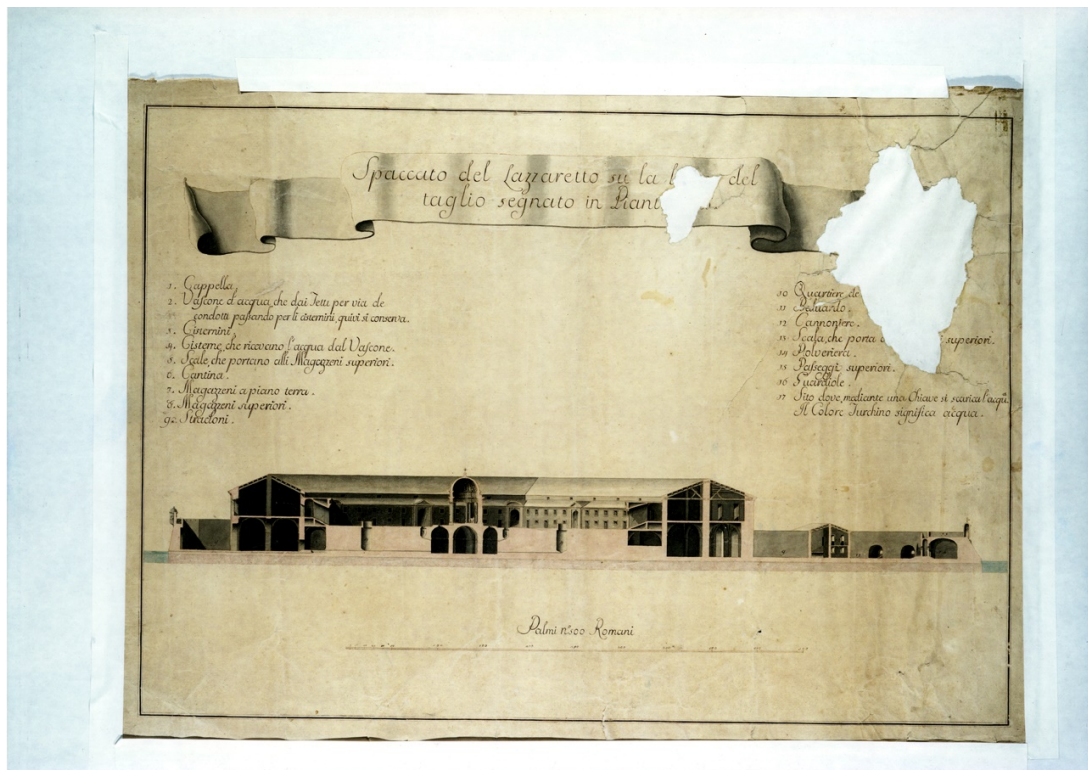 Spaccato del Lazzaretto su la l del
taglio segnato in Piant
1. Cappella.
2. Vascone d'acqua, che dai Tetti per via de
condotti passando per li cisternini, quivi si conserva.
3. Cisternini.
4. Cisterne, che ricevano l'acqua dal Vascone.
5. Scale, che portano alli Magazzeni superiori.
6. Cantina.
7. Magazzeni a piano terra.
8. Magazzeni superiori.
9. Stradoni.
10 Quartiere de
11 Beluardo.
12 Cannoniere.
13 Scala, che porta superiori.
14 Polveriera.
15 Passeggi superiori.
16 Guardiole.
17 Sito dove, mediante una Chiave si scarica l'acqu.
Il Colore Turchino significa acqua.
Palmi n.º 500 Romani